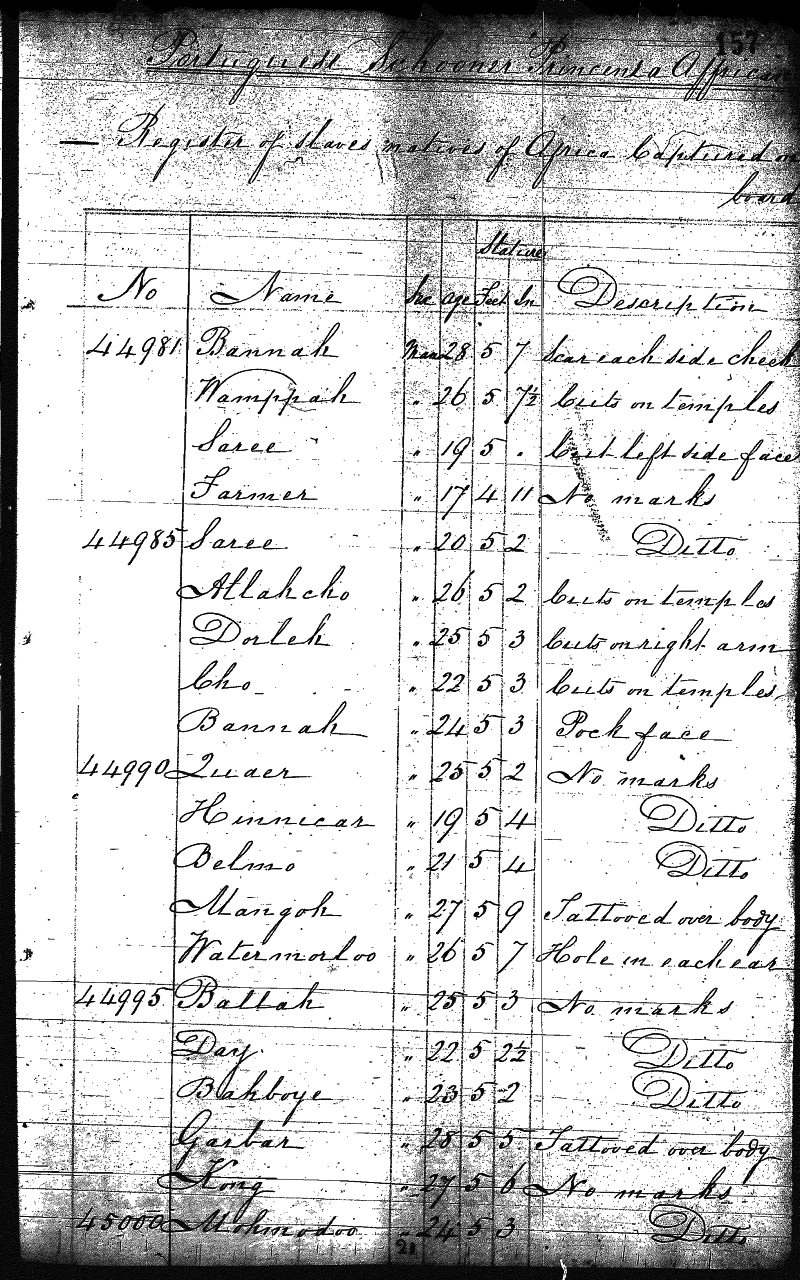 157
Portuguese Schooner Princeza African
Register of slaves natives of Africa Captured on
board
Stature
No Name Sex Age Feet In Description
44981 Bannah Man 28 5 7 Scar each side cheek
Wamppah " 26 5 7½ Cuts on temples
Saree " 19 5 " Cut left side face
Farmer " 17 4 11 No marks
44985 Saree " 20 5 2 Ditto
Allahcho " 26 5 2 Cuts on temples
Dorleh " 25 5 3 Cuts on right arm
Cho " 22 5 3 Cuts on temples
Bannah " 24 5 3 Pock face
44990 Quaer " 25 5 2 No marks
Hinnicar " 19 5 4 Ditto
Belmo " 21 5 4 Ditto
Mangoh " 27 5 9 Tattoved over body
Watermorloo " 26 5 7 Hole in each ear
44995 Battah " 25 5 3 No marks
Day " 22 5 2½ Ditto
Bahboye " 23 5 2 Ditto
Garbar " 28 5 5 Tattoved over body
Kong " 27 5 6 No marks
45000 Mohmodoo " 24 5 3 Ditto
21